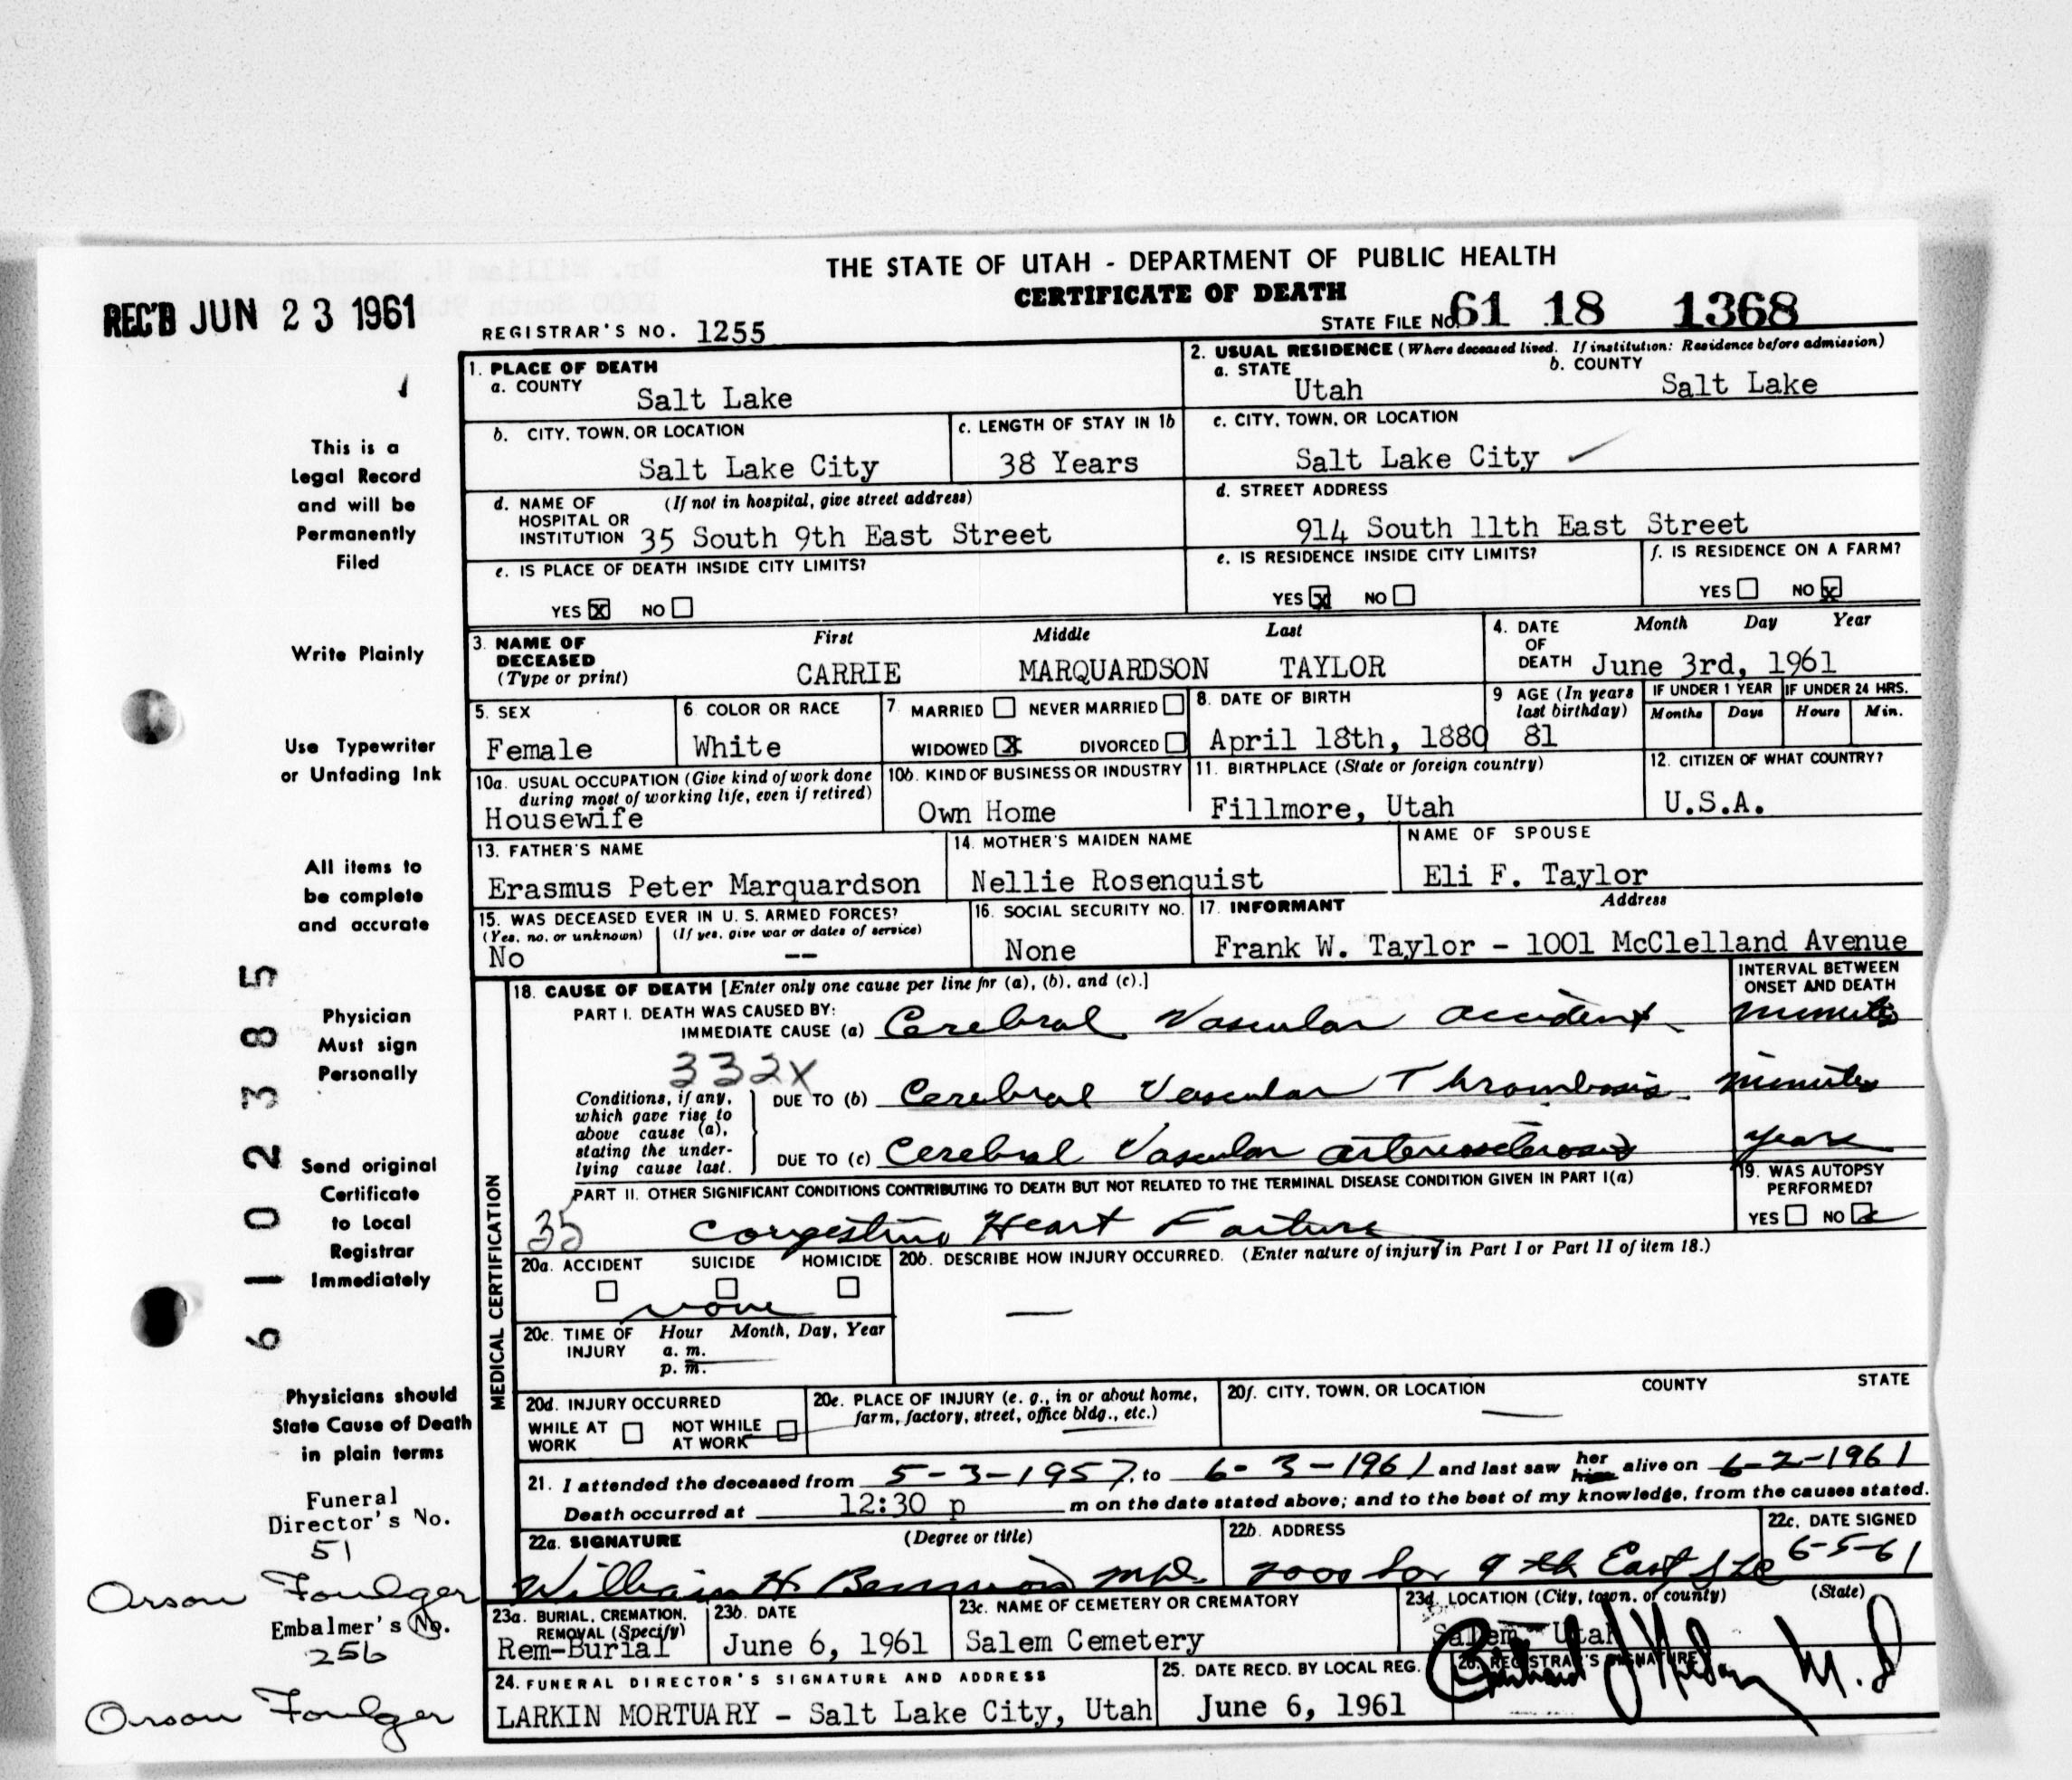 THE STATE OF UTAH - DEPARTMENT OF PUBLIC HEALTH
CERTIFICATE OF DEATH
REC'D JUN 23 1961
REGISTRAR'S NO. 1255
STATE FILE NO. 61 18 1368
This is a
Legal Record
and will be
Permanently
Filed
Write Plainly
Use Typewriter
or Unfading Ink
All items to
be complete
and accurate
Physician
Must sign
Personally
Send original
Certificate
to Local
Registrar
Immediately
Physicians should
State Cause of Death
in plain terms
Funeral
Director's No.
51
Orson Foulger
Embalmer's No.
256
Orson Foulger
61 02385
1. PLACE OF DEATH
a. COUNTY
Salt Lake
b. CITY, TOWN, OR LOCATION
Salt Lake City
c. LENGTH OF STAY IN 1b
38 Years
d. NAME OF (If not in hospital, give street address)
HOSPITAL OR
INSTITUTION 35 South 9th East Street
e. IS PLACE OF DEATH INSIDE CITY LIMITS?
YES X NO
2. USUAL RESIDENCE (Where deceased lived. If institution: Residence before admission)
a. STATE
Utah
b. COUNTY
Salt Lake
c. CITY, TOWN, OR LOCATION
Salt Lake City
d. STREET ADDRESS
914 South 11th East Street
e. IS RESIDENCE INSIDE CITY LIMITS?
YES X NO
f. IS RESIDENCE ON A FARM?
YES NO X
3. NAME OF
DECEASED
(Type or print)
First Middle Last
CARRIE MARQUARDSON TAYLOR
4. DATE
OF
DEATH
Month Day Year
June 3rd, 1961
5. SEX
Female
6. COLOR OR RACE
White
7. MARRIED NEVER MARRIED
WIDOWED X DIVORCED
8. DATE OF BIRTH
April 18th, 1880
9 AGE (In years
last birthday)
81
IF UNDER 1 YEAR
Months Days
IF UNDER 24 HRS.
Hours Min.
10a. USUAL OCCUPATION (Give kind of work done
during most of working life, even if retired)
Housewife
10b. KIND OF BUSINESS OR INDUSTRY
Own Home
11. BIRTHPLACE (State or foreign country)
Fillmore, Utah
12. CITIZEN OF WHAT COUNTRY?
U.S.A.
13. FATHER'S NAME
Erasmus Peter Marquardson
14. MOTHER'S MAIDEN NAME
Nellie Rosenquist
NAME OF SPOUSE
Eli F. Taylor
15. WAS DECEASED EVER IN U. S. ARMED FORCES?
(Yes, no, or unknown) (If yes, give war or dates of service)
No --
16. SOCIAL SECURITY NO.
None
17. INFORMANT Address
Frank W. Taylor - 1001 McClelland Avenue
MEDICAL CERTIFICATION
18. CAUSE OF DEATH [Enter only one cause per line for (a), (b), and (c).]
INTERVAL BETWEEN
ONSET AND DEATH
PART I. DEATH WAS CAUSED BY:
IMMEDIATE CAUSE (a) Cerebral Vascular accident minutes
332X
Conditions, if any,
which gave rise to
above cause (a),
stating the under-
lying cause last.
DUE TO (b) Cerebral Vascular Thrombosis minutes
DUE TO (c) Cerebral Vascular arteriosclerosis years
PART II. OTHER SIGNIFICANT CONDITIONS CONTRIBUTING TO DEATH BUT NOT RELATED TO THE TERMINAL DISEASE CONDITION GIVEN IN PART I(a)
35 Congestive Heart Failure
19. WAS AUTOPSY
PERFORMED?
YES NO
20a. ACCIDENT SUICIDE HOMICIDE
none
20b. DESCRIBE HOW INJURY OCCURRED. (Enter nature of injury in Part I or Part II of item 18.)
—
20c. TIME OF Hour Month, Day, Year
INJURY a. m.
p. m.
20d. INJURY OCCURRED
WHILE AT NOT WHILE
WORK AT WORK
20e. PLACE OF INJURY (e. g., in or about home,
farm, factory, street, office bldg., etc.)
20f. CITY, TOWN, OR LOCATION COUNTY STATE
21. I attended the deceased from 5-3-1957, to 6-3-1961 and last saw her him alive on 6-2-1961
Death occurred at 12:30 p m on the date stated above; and to the best of my knowledge, from the causes stated.
22a. SIGNATURE (Degree or title)
William H Bennion MD.
22b. ADDRESS
2000 So 9th East SLC
22c. DATE SIGNED
6-5-61
23a. BURIAL, CREMATION,
REMOVAL (Specify)
Rem-Burial
23b. DATE
June 6, 1961
23c. NAME OF CEMETERY OR CREMATORY
Salem Cemetery
23d. LOCATION (City, town, or county) (State)
Salem Utah
24. FUNERAL DIRECTOR'S SIGNATURE AND ADDRESS
LARKIN MORTUARY - Salt Lake City, Utah
25. DATE RECD. BY LOCAL REG.
June 6, 1961
26. REGISTRAR'S SIGNATURE
M.D